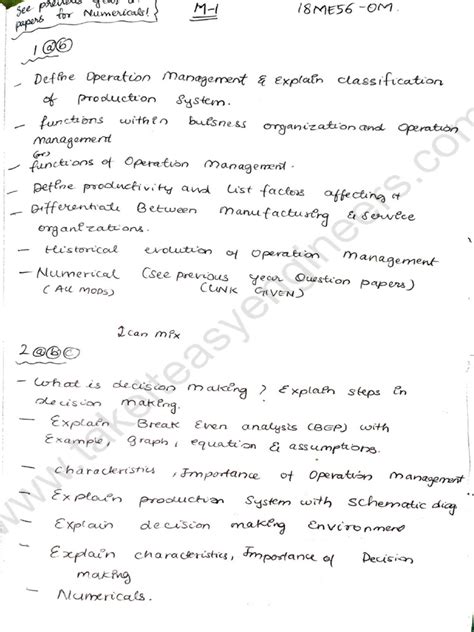 See previous year Q.
papers for Numericals!
M-1
18ME56-OM.
1 a b
- Define Operation Management & Explain classification
of production System.
- functions within buisness organization and Operation
Management
(or)
- functions of Operation Management.
- Define productivity and List factors affecting it
- Differentiate Between Manufacturing & Service
organizations.
- Historical evolution of Operation Management
- Numerical (See previous year Question papers)
(All MODS) (LINK GIVEN)
2 can mix
2 a b c
- What is decision making? Explain steps in
decision making.
- Explain Break Even analysis (BEP) with
Example, Graph, equation & assumptions.
- Characteristics, Importance of Operation Management
- Explain production System with schematic diag
- Explain decision making Environment
- Explain characteristics, Importance of Decision
making
- Numericals.
www.takeiteasyengineers.com